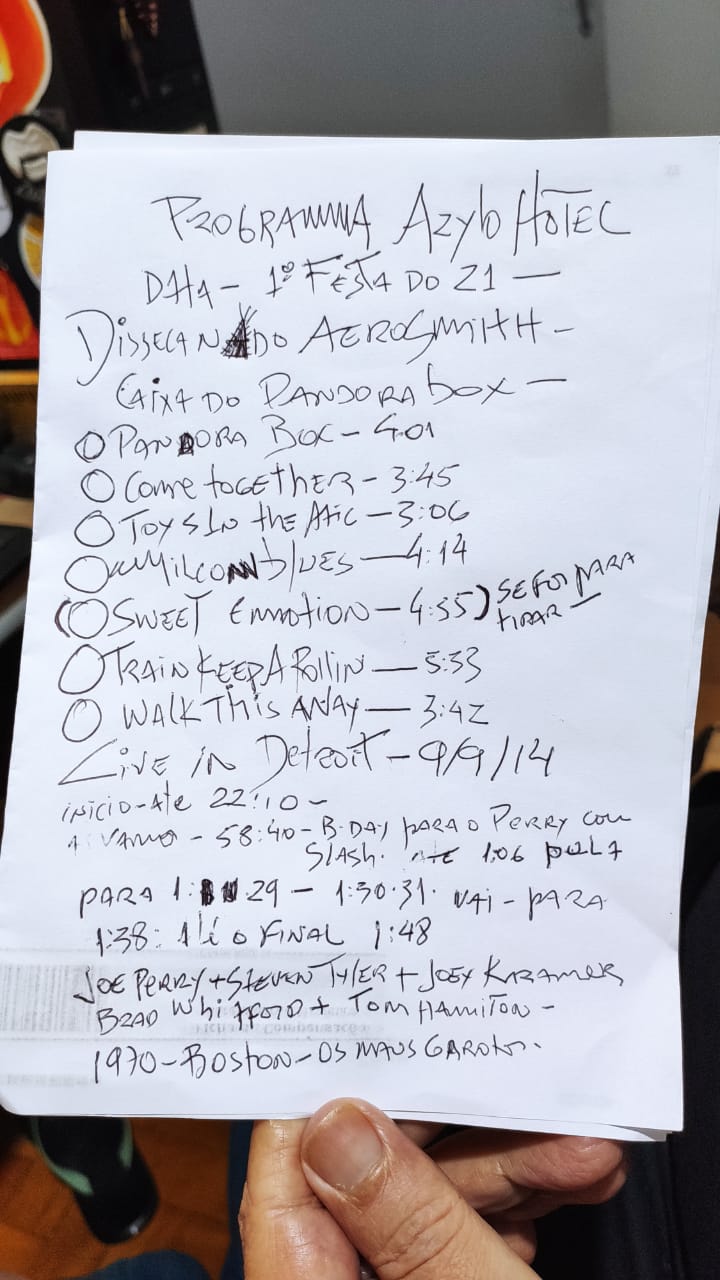 PROGRAMMA AZYLO HOTEL
DATA - 1º FESTA DO Z1 —
DISSECANDO AEROSMITH -
CAIXA DO PANDORA box -
PANDORA BOX - 4:01
Come togetHER - 3:45
TOYS IN the AtiC - 3:06
MILCOW blues - 4:14
(SWEET EMMOTION - 4:35) SE FOR PARA
tIRAR -
TRAIN KEEP A Rollin - 5:33
WALK THis AWAY - 3:42
LiVE iN Detroit - 9/9/14
iNicio - Até 22:10 -
58:40 - B-DAY PARA O PERRY com
SlASH. ATÉ 1:06 PULA
PARA 1: 29 - 1:30:31. VAI - PARA
1:38: Até o FINAL 1:48
JOE PERRY + STEVEN TYLER + JOEY KRAMER
BRAD WhiTFORD + TOM HAMILTON -
1970 - BOSTON - OS MAUS GAROTOS.